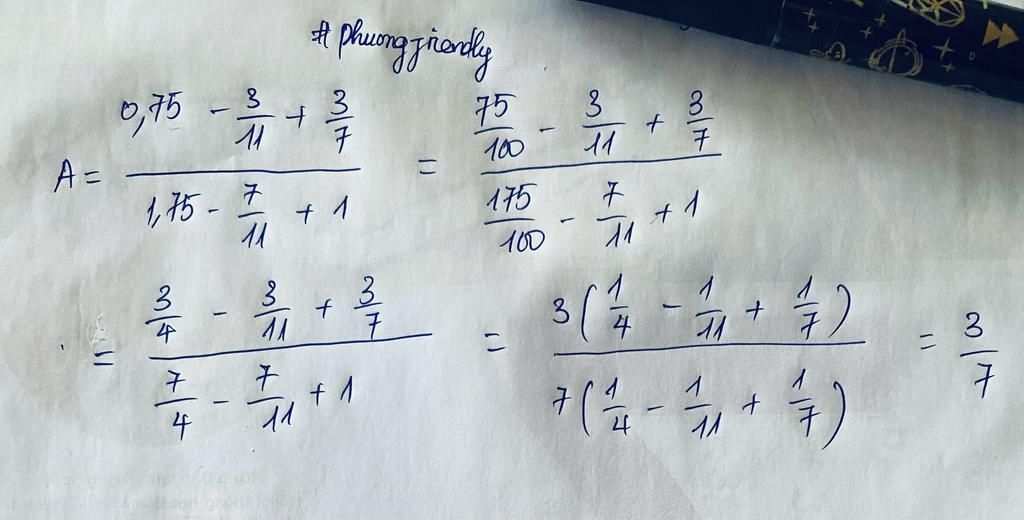 #phuongfriendly
A = (0,75 - 3/11 + 3/7) / (1,75 - 7/11 + 1) = (75/100 - 3/11 + 3/7) / (175/100 - 7/11 + 1)
= (3/4 - 3/11 + 3/7) / (7/4 - 7/11 + 1) = 3(1/4 - 1/11 + 1/7) / 7(1/4 - 1/11 + 1/7) = 3/7